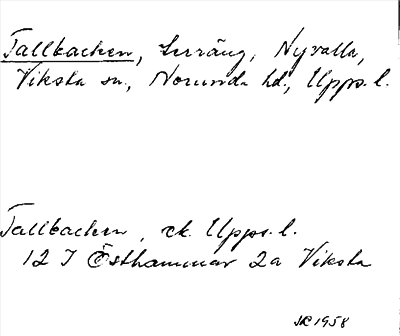 Tallbacken, Surräng, Nyvalla,
Viksta sn, Norunda hd., Upps. l.
Tallbacken, ek. Upps. l.
12 I Östhammar 2a Viksta
1958